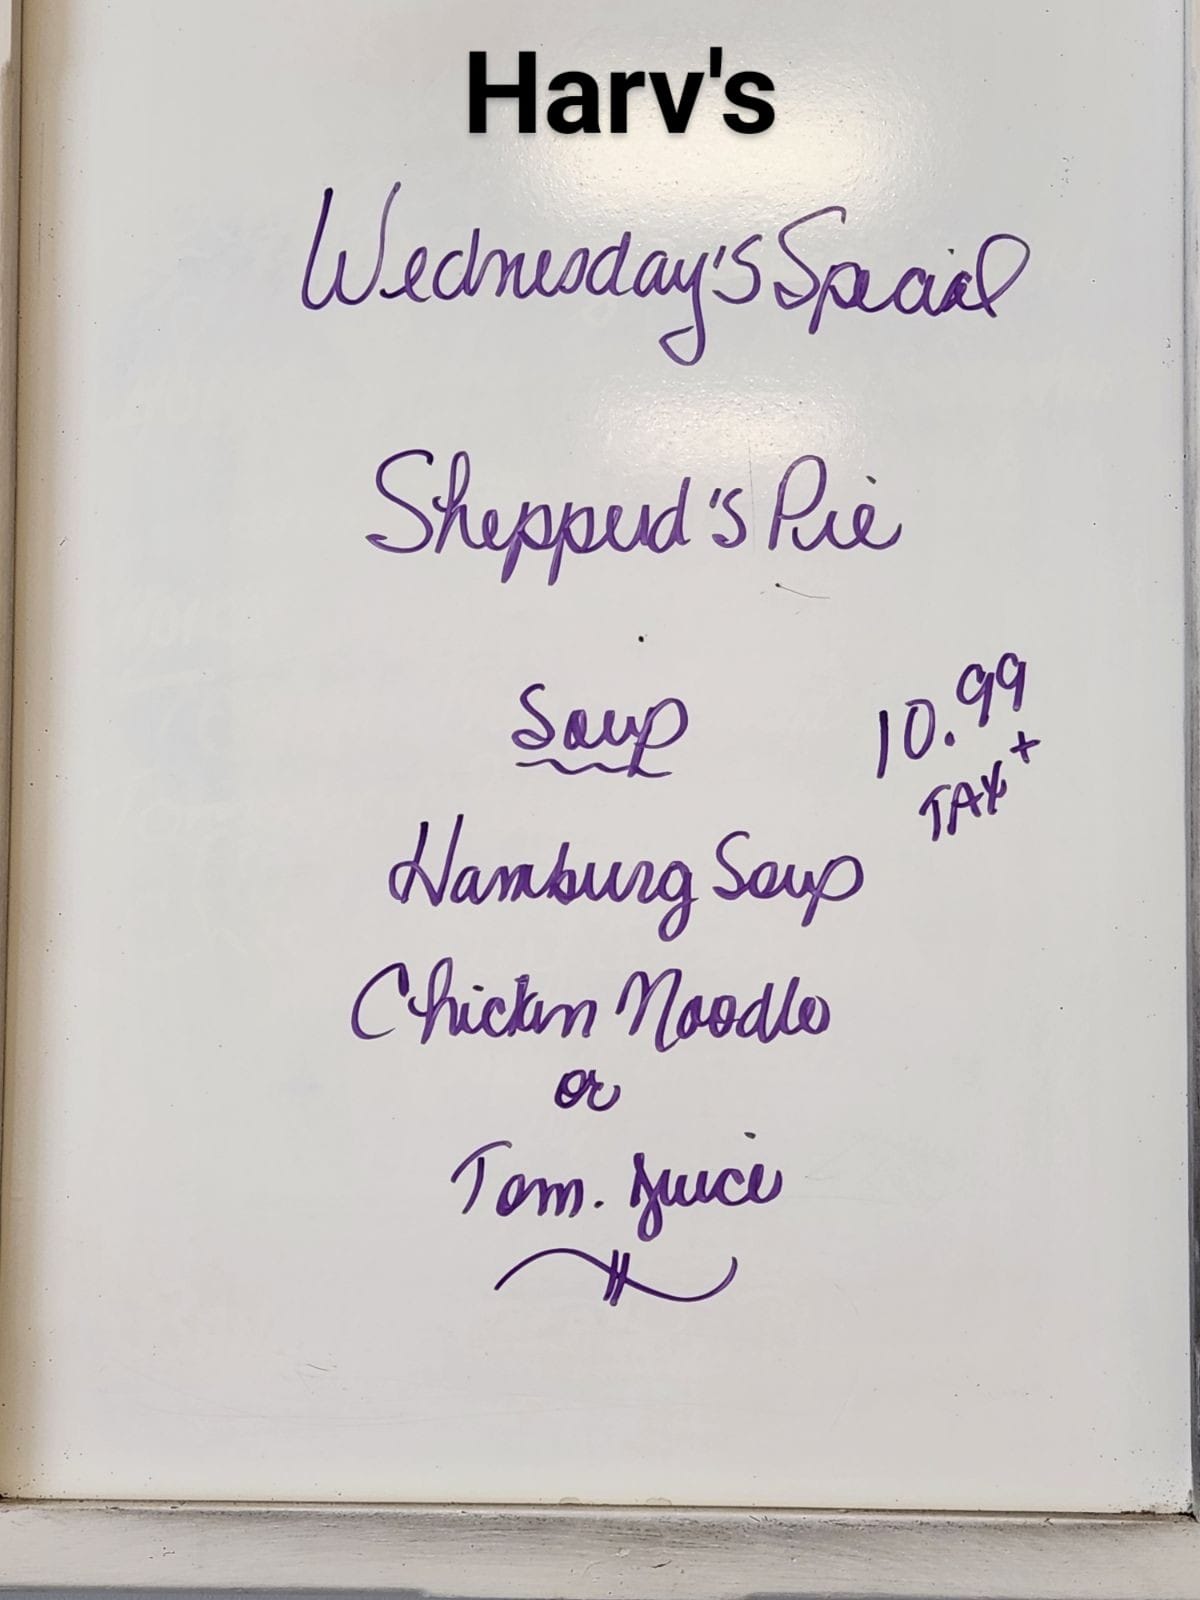 Harv's
Wednesday's Special
Shepperd's Pie
Soup
10.99
TAX +
Hamburg Soup
Chicken Noodle
or
Tom. Juice